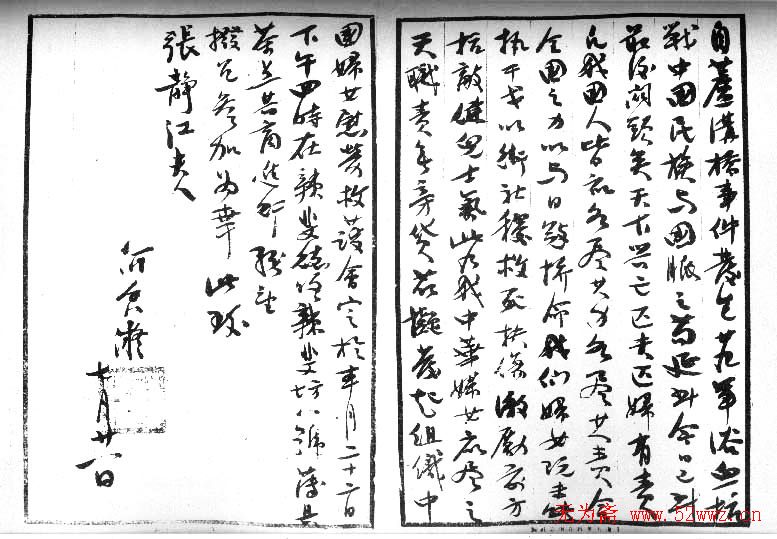 自蘆溝橋事件發生廿九軍浴血抗
戰中國民族與國脈之苟延到今日已到
最後關頭矣天下興亡匹夫匹婦有責
凡我國人皆應各盡其力各盡其責合
全國之力以與日敵拚命我們婦女既未能
執干戈以衛社稷救死扶傷激勵前方
抗敵健兒士氣此乃我中華婦女應盡之
天職責無旁貸茲擬發起組織中
國婦女慰勞救護會定於本月二十二日
下午四時在辣斐德路辣斐坊八號薄具
茶點共商進行務望
撥冗參加為幸此致
張靜江夫人
何香凝
七月廿一日
无为斋 www.52wwz.cn